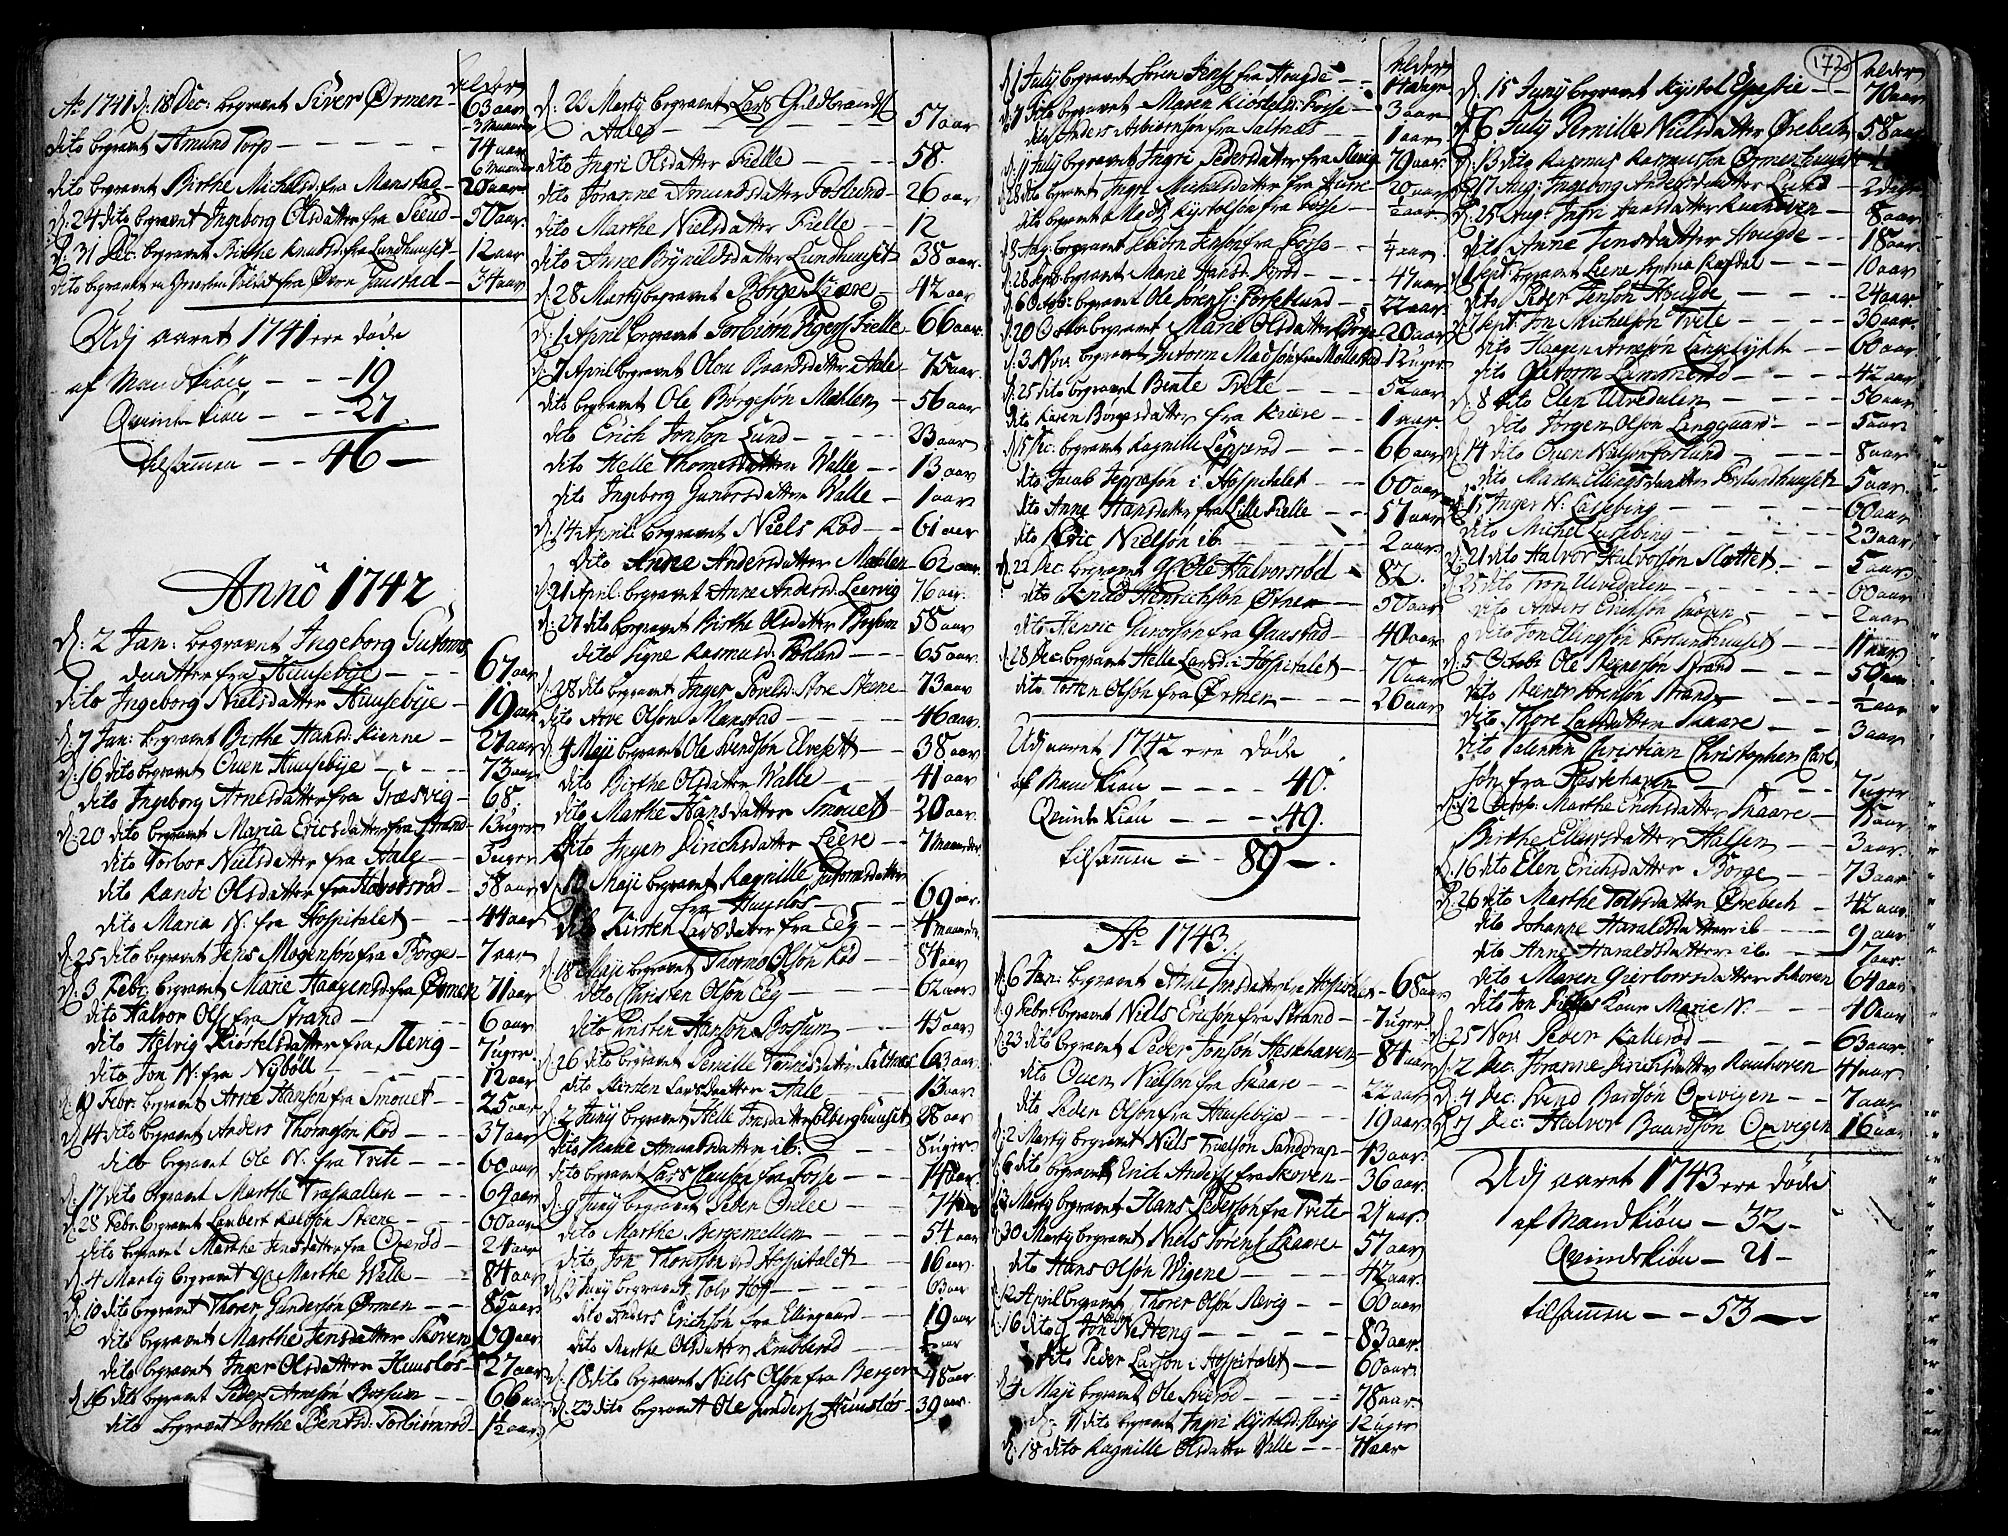 Alder
Ao 1741 d: 18 Dec: begravet Siver Ørmen - 63 aar 3 Maaneder
dito begravet Amund Torp - - - - - 74 aar 6 Maaneder
dito begravet Birthe Michelsd: fra Manstad - 20 aar
d: 24 dito begravet Ingeborg Olsdatter fra Seeud - 50 aar
d: 31 Dec: begravet Birthe Knudsd: fra Lundhuuset - 12 aar
dito begravet fra Øvre Gaustad - 34 aar
Udj aaret 1741 ere døde
af Mandkiön - - - 19
Qvindekiön - - - 27
tilsammen - - 46 -
Anno 1742
d: 2 Jan: begravet Ingeborg Gutorms
daatter fra Huusebÿe - - - 67 aar
dito Ingeborg Nielsdatter Huusebÿe - 19 aar
d: 7 Jan: begravet Birthe Hansd: Kienne - 27 aar
d: 16 dito begravet Ouen Huusebÿe - - - 73 aar
dito Ingeborg Arnesdatter fra Græsvig - 68.
d: 20 dito begravet Maria Ericsdatter fra Strand - 13 uger
dito Torbor Nielsdatter fra Aale - - 3 uger
dito Rande Olsdatter fra Halvorsrød - 58 aar
dito Maria N. fra Hospitalet - - 44 aar
d: 25 dito begravet Jens Mogensøn fra Borge - 7 aar
d: 3 Febr: begravet Marie Haagensd: fra Ørmen 71 aar
dito Halvor Ols: fra Strand - - - 6 aar
dito Helvig Kiostelsdatter fra Slevig - 7 uger
dito Jon N: fra Nÿbøll - - - - 12 aar
d: 10 Febr: begravet Arne Hansøn fra Smouet - 25 aar
d: 14 dito begravet Anders Thomesøn Rød - - 37 aar
dito begravet Ole N: fra Tvite - - - 60 aar
d: 17 dito begravet Marthe Træsualen - - 64 aar
d: 28 Febr: begravet Lambert Steene - - 60 aar
dito begravet Marthe Jensdatter fra Ouerød - - 24 aar
d: 4 Martÿ begravet gl: Marthe Walle - - 84 aar
d: 10 dito begravet Thorer Gundersøn Ørmen - - 85 aar
dito begravet Marthe Jensdatter Skoven 69 aar
dito begravet Inger Olsdatter Huusløs - 27 aar
d: 16 dito begravet Peder Arnesøn Bossum - - 66 aar
dito begravet Dorthe Bentsd: Torbiørnrød - 1½ aar
d: 23 Martÿ begravet Lars Guldbrandss:
Aale - - - - 57 aar
dito Ingri Olsdatter Fielle - - - 58.
dito Joranne Amundsdatter Foslund - 26 aar
dito Marthe Nielsdatter Fielle - - 12
dito Anne Brÿnildsdatter Lundhuuset - 38 aar
d: 28 Martÿ begravet Børge Kiære - 42 aar
d: 1 April begravet Torbiørn Fielle - 66 aar
d: 7 April begravet Olou Baardsdatter Aale - 75 aar
dito begravet Ole Børgesøn Møklen - 56 aar
dito Erich Jonsøn Lund - - - 23 aar
dito Helle Thomesdatter Walle - - 13 aar
dito Ingeborg Gunorsdatter Walle - 1 aar
d: 14 April begravet Niels Rød - - 61 aar
dito Anne Andersdatter Møklen - 62 aar
d: 21 April: begravet Anne Andersd: Leervig 76 aar
d: 27 dito begravet Birthe Olsdatter Bossum 58 aar
dito Signe Rasmusd: Foslund - - - 65 aar
d: 28 dito begravet Inger Store Steene - 73 aar
dito Arve Olsøn Manstad - - - - 46 aar
d: 4 Maÿe begravet Ole Svendsøn Elvesett - - 38 aar
dito Birthe Olsdatter Walle - - - 41 aar
dito Marthe Hansdatter Smouet - 20 aar
dito Inger Dirichsdatter Leere - 7 Maaneder
Maje begravet Ragnille Gutormsdatter
fra Huusløs - - - 69 aar
dito Kirsten Larsdatter fra Eeg - 4 maaneder
d: 18 Maje begravet Thormo Olsøn Rød - 84 aar
dito Christen Olsøn Eeg - - - - 62 aar
dito Torsten Hansøn Bossum - - 45 aar
d: 26 dito begravet Pernille Tønnesdatter Saltnæs 63 aar
dito Kirsten Larsdatter Aale - - 13 aar
d: 2 Junÿ begravet Helle Jensdatter Elberghuuset 28 aar
dito Marie Amundsdatter ib: - - - 8 uger
dito begravet Lars Clausøn fra Fosse - - 14 aar
d: 9 Junÿ begravet Peder Onlee - - 74 aar
dito Marthe Bergemellem - - - 54 aar
dito Jon Thomesøn ved Hospitalet - - 16 aar
d: Junÿ begravet Tolv Hoff - - - 63 aar
dito Anders Erichsøn fra Ellingaard - - 19 aar
dito Marthe Olsdatter Krabberød - ½ aar
d: 18 dito begravet Niels Olsøn fra Berger - 48 aar
d: 23 dito begravet Ole Huusløs - 39 aar
Alder
d: 1 Julÿ begravet Søren Jenss: fra Hougde - -
d: 7 dito begravet Maren Kiostelsd: Fosse - 3 aar
dito Anders Asbiørnsøn fra Saltnæs - 1 aar
d: 11 Julÿ begravet Ingri Pedersdatter fra Slevig 79 aar
d: 28 dito begravet Inger Michelsdatter fra Huse - 20 aar
dito begravet Mads Kÿstolsøn fra Fosse - ½ aar
d: 18 Aug: begravet Esbiørn Jensøn fra Fosse - - ¼ aar
d: 28 Sept: begravet Marie Hansd: Rød - - 47 aar
d: 6 Octob: begravet Ole Sørens: Torkeslund - - 22 aar
d: 20 Octobr begravet Marie Olsdatter Børge - 20 aar
d: 3 Nov: begravet Gutorm Madsøn fra Møklerød 12 uger
d: 25 dito begravet Bente Tvete - - - 52 aar
dito Karen Børgesdatter fra Kiære - 1 aar
d: 15 Dec: begravet Ragnille Lepperød - - 66 aar
dito Jacob Jeppesøn i Hospitalet - - 60 aar
dito Anne Hansdatter fra Lille Fielle - - 57 aar
dito Eric Nielsøn ib. - - - - 2 aar
d: 22 Dec: begravet gl: Ole Halvorsrød - 82.
dito Knud Henrichsøn Østner - - 50 aar
dito Henric Gunorsøn fra Gaustad - - 40 aar
d: 28 Dec: begravet Helle Larsd: i Hospitalet - 70 aar
dito Torsten Olsøn fra Ørmen - - - 26 aar
Udj aaret 1742 ere døde
af Mandkiön - - - - 40.
Qvindekiön - - - - 49.
tilsammen - - 89 -
Ao 1743.
d: 6 Jan: begravet Anne Jensdatter fra Hospitalet - 68 aar
d: 9 Febr: begravet Niels Ericsøn fra Strand - - 7 uger
d: 23 dito begravet Peder Jonsøn Heskehaven - 84 aar
dito Ouen Nielsøn fra Skaare - - - 22 aar
dito Peder Olsøn fra Huusebÿe - - - 19 aar
d: 2 Martÿ begravet Niels Truelsøn Sanddrap - 13 aar
d: 6 dito begravet Erich Anderss: fra Skoven - - 36 aar
Martÿ begravet Hans Pedersøn fra Tvite - - 21 aar
d: 30 Martÿ begravet Niels Sørens: Skaare - - 57 aar
dito Hans Olsøn Wigene - - - 42 aar
d: 12 April begravet Thorer Olsøn Slevig - - 60 aar
16 dito gl: Jon Nedeng - - - - 83 aar
dito Peder Larsøn i Hospitalet - - 60 aar
d: 4 Maje begravet Ole - - - - 78 aar
d: 11 dito begravet Ingri Kÿstelsd: Slevig - 12 uger
d: 18 dito Ragnille Olsdatter Walle - - - 71 aar
172
Alder
d: 15 Junÿ begravet Kÿstol - - 70 aar
d: 6 Julÿ Pernille Nielsdatter Ørebech 58 aar
d: 13 dito Rasmus Rasmusøn Ørmenhuuset
d: 17 Aug: Ingeborg Andersdatter Lund -
d: 25 Aug: Ingri Hansdatter Kuuhoven - - 8 aar
dito Anne Jensdatter Hougde - - 18 aar
d: 1 Sept: begravet Leene Rogdal - 10 aar
dito Peder Jensøn Hougde - - - 24 aar
d: 7 Sept: Jon Michelsøn Tvite - - - - 36 aar
dito Haagen Arnesøn - - 60 aar
dito Gutorm - - - - 42 aar
d: 8 dito Elen Ulvedalen - - - 56 aar
dito Jørgen Olsøn Langgaard: - - - 5 aar
d: 14 dito Ouen Nielsøn Foslund - - - 8 aar
dito Maren Ellingsdaatter Foslundhuuset - 5 aar
d: 15 Inger N: Lassebing - - - - 60 aar
dito Michel Lassebing - - - 23 aar
d: 21 dito Halvor Halvorsøn Slettet - - 5 aar
d: 25 dito Tron Ulvedalen - - - 60 aar
dito Anders Erichsøn Skoven - - 2 aar
dito Jon Ellingsøn Foslundhuuset - - 11 aar
d: 5 Octobr: Ole Reiersøn Strand - - 50 aar
dito Sørensøn Strand - - ½ aar
dito Thore Larsdatter Skaare - - 3 aar
dito Valentin Christian Christopher Carl
søn fra Heskehaven - - - 7 uger
d: 12 Octob: Marthe Erichsdatter Skaare - aar
Birthe Ellensdatter Halsen - - 3 aar
d: 16 dito Elen Erichsdatter Borge - - 73 aar
d: 26 dito Marthe Tolvsdatter Ørebech - 42 aar
dito Johanne Haraldsdatter ib - - 9 aar
dito Anne Haraldsdatter ib - - 7 aar
dito Maren Gierlowsdatter Skoven 64 aar
dito Jon Marie N. - - 40 aar
d: 25 Nov: Peder Kallerød - - - 63 aar
d: 2 Dec: Joranne Dirichsdatter Kuuhoven - 41 aar
d: 4 Dec: Svend Bardsøn Opvigen - - 7 aar
d: 7 Dec: Halvor Baardsøn Opvigen 16 aar
Udj aaret 1743 ere døde
af Mandkiön - 32 -
Qvindekiön - 21 -
tilsammen - - 53 -